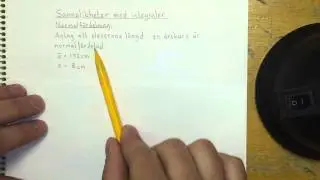 Sannolikheter med integraler.
Normalfördelning.
Antag att elevernas längd en årskurs är
normalfördelad
= 172 cm
s = 8 cm